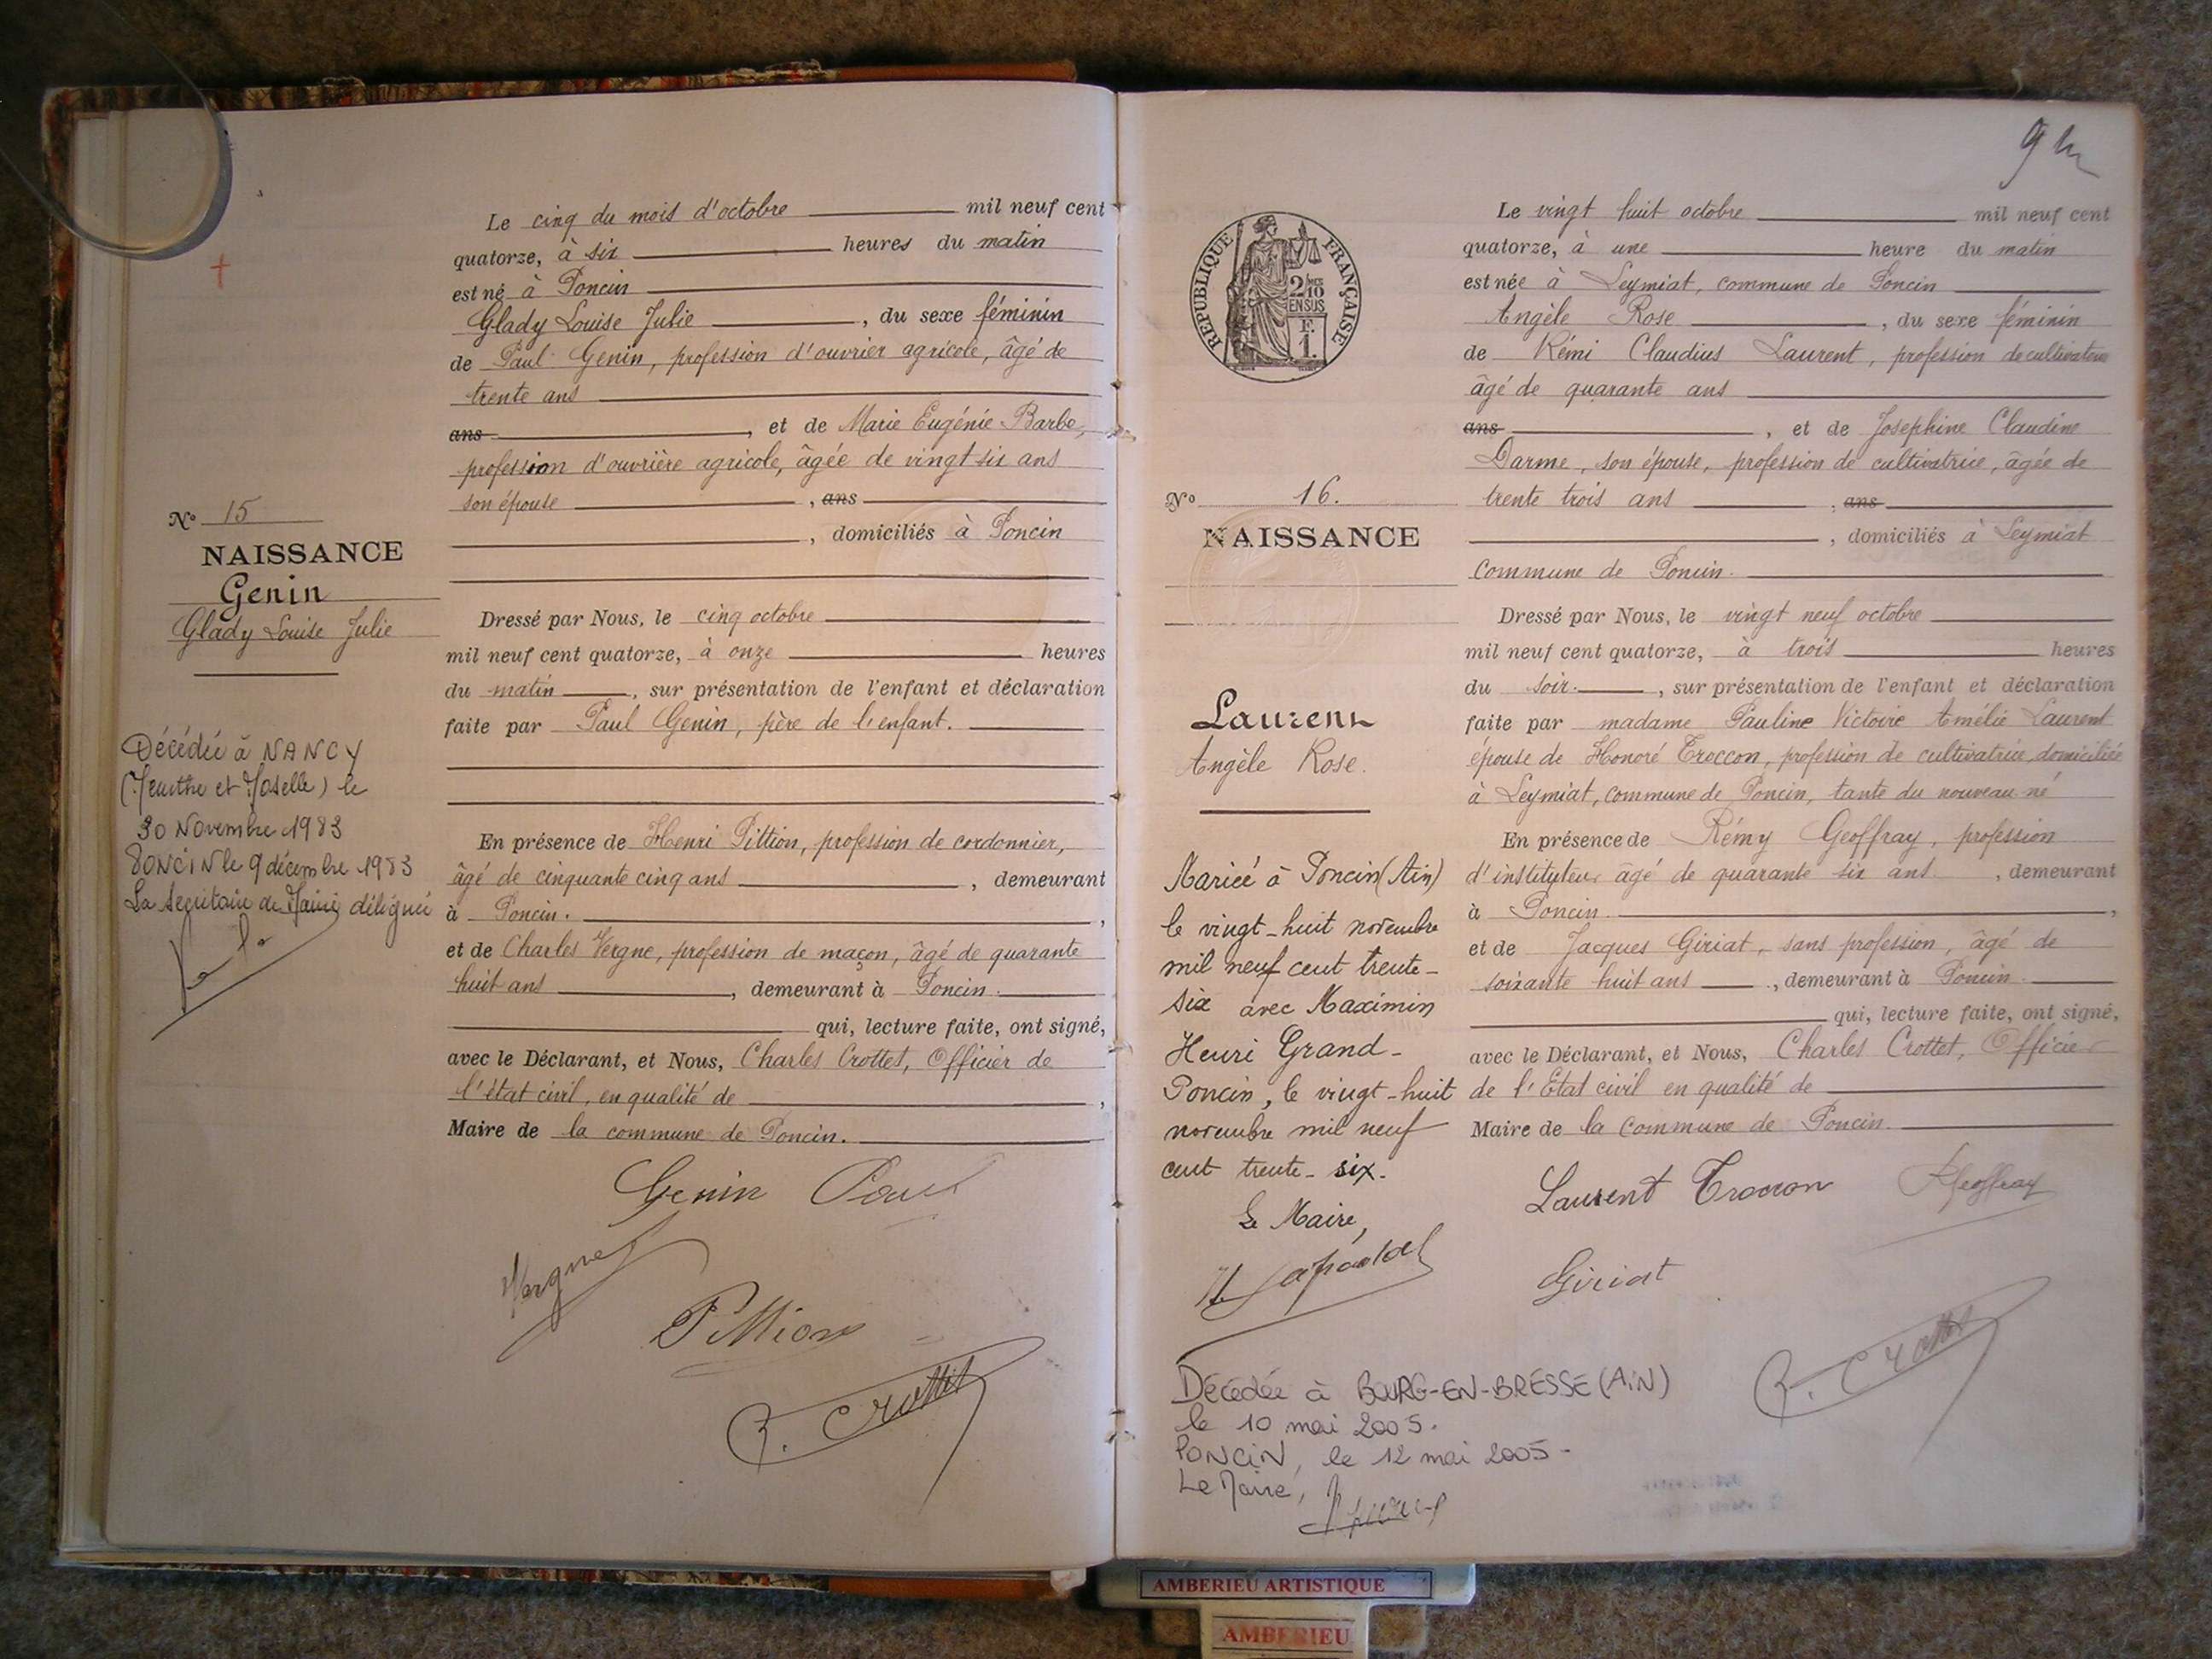 Le cinq du mois d'octobre mil neuf cent
quatorze, à six heures du matin
est né à Poncin
Glady Louise Julie, du sexe féminin
de Paul Genin, profession d'ouvrier agricole, âgé de
trente ans
ans, et de Marie Eugénie Barbe,
profession d'ouvrière agricole, âgée de vingt six ans
son épouse, ans
, domiciliés à Poncin
N° 15
NAISSANCE
Genin
Glady Louise Julie
Dressé par Nous, le cinq octobre
mil neuf cent quatorze, à onze heures
du matin, sur présentation de l'enfant et déclaration
faite par Paul Genin, père de l'enfant.
Décédée à NANCY
(Meurthe et Moselle) le
30 Novembre 1983
PONCIN le 9 décembre 1983
La Secrétaire de Mairie délégué
En présence de Henri Pittion, profession de cordonnier,
âgé de cinquante cinq ans, demeurant
à Poncin.,
et de Charles Vergne, profession de maçon, âgé de quarante
huit ans, demeurant à Poncin.
qui, lecture faite, ont signé,
avec le Déclarant, et Nous, Charles Crottet, Officier de
l'état civil, en qualité de,
Maire de la commune de Poncin.
Genin Paul
Vergne
Pittion
C. Crottet
Le vingt huit octobre mil neuf cent
quatorze, à une heure du matin
est née à Leymiat, commune de Poncin
Angèle Rose, du sexe féminin
de Rémi Claudius Laurent, profession de cultivateur
âgé de quarante ans
ans, et de Josephine Claudine
Darme, son épouse, profession de cultivatrice, âgée de
trente trois ans, ans
, domiciliés à Leymiat
commune de Poncin.
REPUBLIQUE FRANÇAISE
2/10 MES
EN SUS
F.
1.
N° 16.
NAISSANCE
Laurent
Angèle Rose.
Dressé par Nous, le vingt neuf octobre
mil neuf cent quatorze, à trois heures
du soir., sur présentation de l'enfant et déclaration
faite par madame Pauline Victoire Amélie Laurent
épouse de Honoré Troccon, profession de cultivatrice, domiciliée
à Leymiat, commune de Poncin, tante du nouveau-né
En présence de Rémy Geoffray, profession
d'instituteur âgé de quarante six ans, demeurant
à Poncin.,
et de Jacques Giriat, sans profession, âgé de
soixante huit ans, demeurant à Poncin.
qui, lecture faite, ont signé,
avec le Déclarant, et Nous, Charles Crottet, Officier
de l'Etat civil en qualité de
Maire de la Commune de Poncin.
Mariée à Poncin (Ain)
le vingt-huit novembre
mil neuf cent trente-
six avec Maximin
Henri Grand-
Poncin, le vingt-huit
novembre mil neuf
cent trente-six.
Le Maire,
Laurent Troccon Geoffray
Giriat
C. Crottet
Décédée à BOURG-EN-BRESSE (AIN)
le 10 mai 2005.
PONCIN, le 12 mai 2005-
Le Maire,
AMBERIEU ARTISTIQUE
AMBERIEU